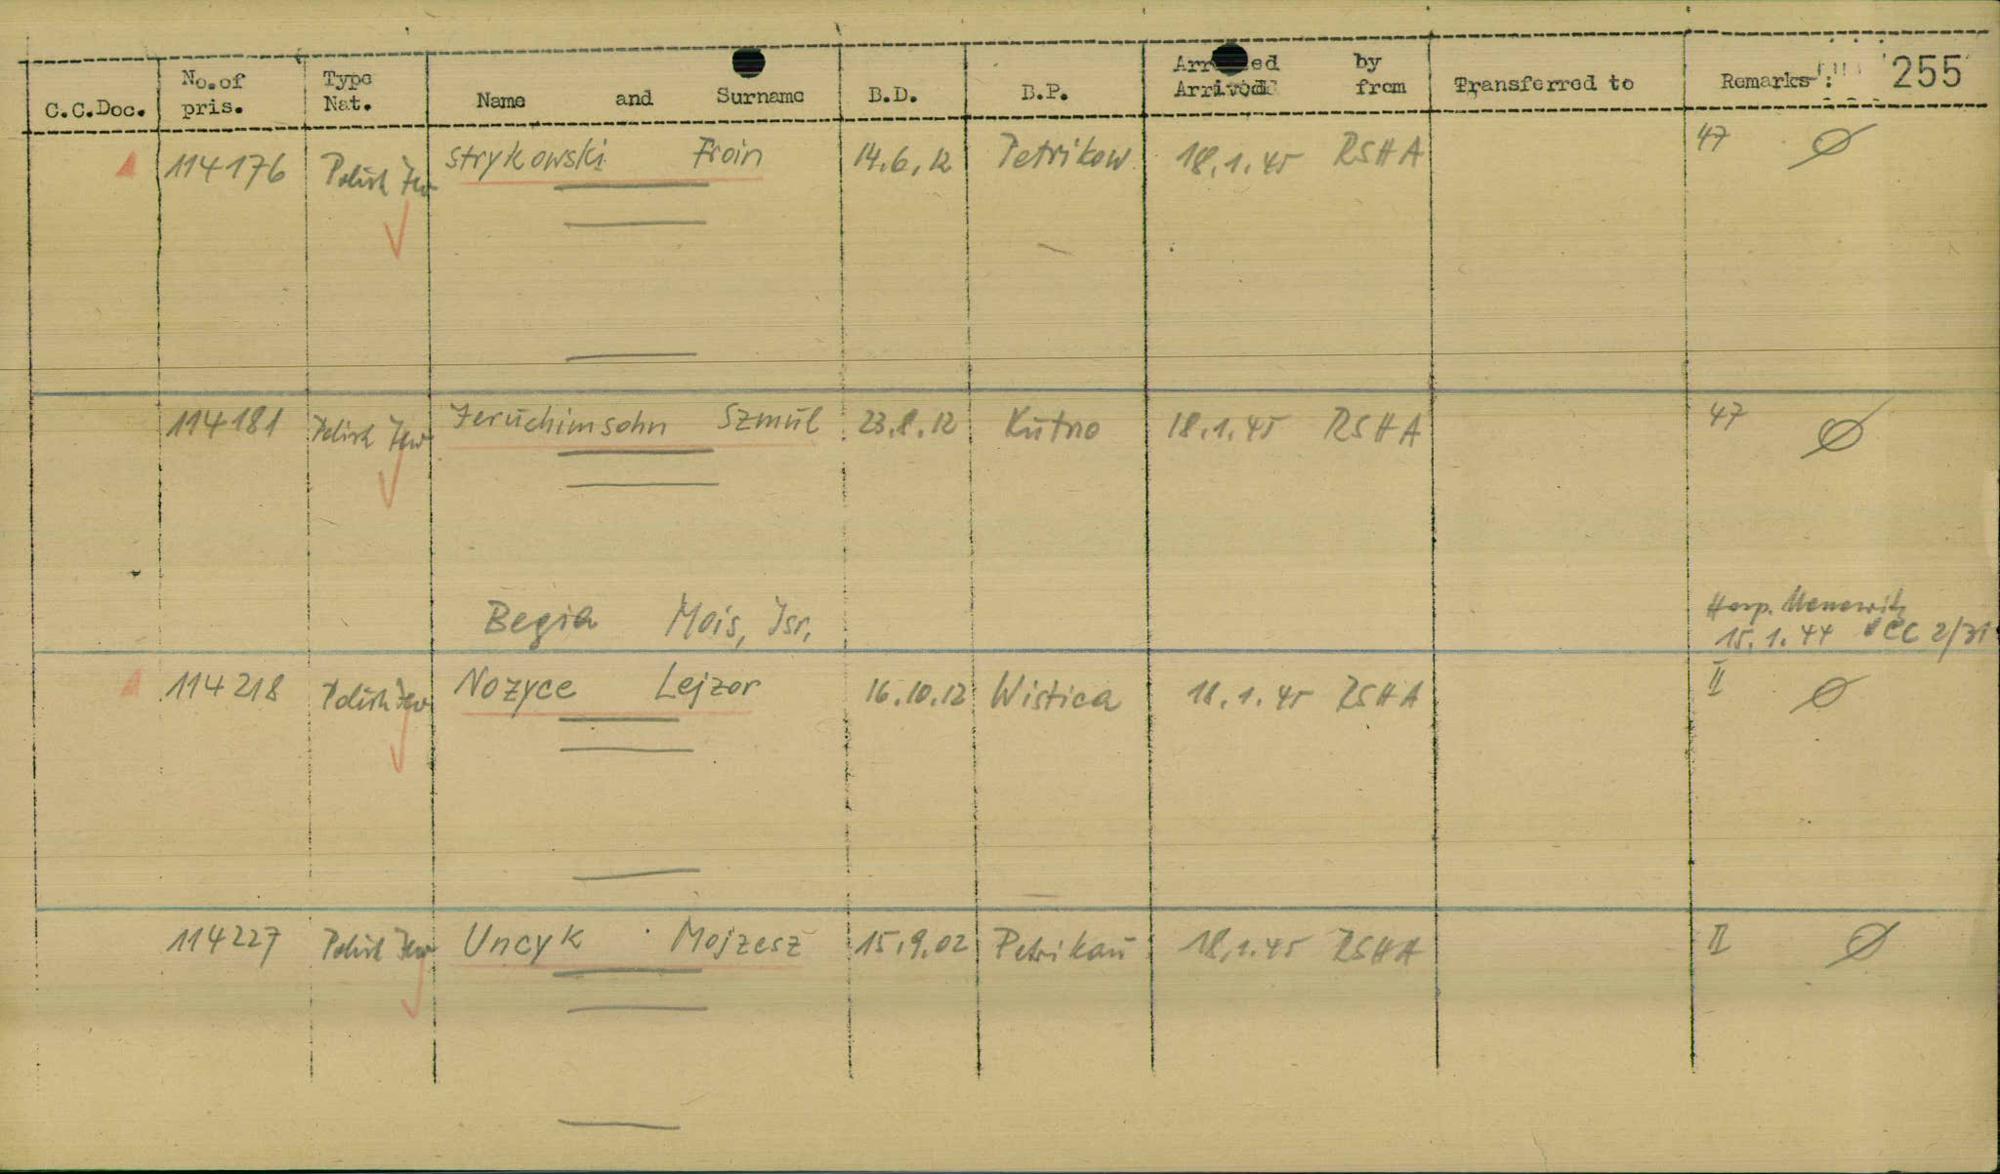 C.C.Doc. No.of pris. Type Nat. Name and Surname B.D. B.P. Arrested by Arrived from Transferred to Remarks: 255
114176 Polish Jew Strykowski Froin 14.6.12 Petrikow 18.1.45 RSHA 47 Ø
114181 Polish Jew Jeruchimsohn Szmul 23.8.12 Kutno 18.1.45 RSHA 47 Ø
Begia Mois, Isr. Hosp. Monowitz
15.1.44 CC 2/31
114218 Polish Jew Nozyce Lejzor 16.10.12 Wistica 18.1.45 RSHA II Ø
114227 Polish Jew Uncyk Mojzesz 15.9.02 Petrikau 18.1.45 RSHA II Ø